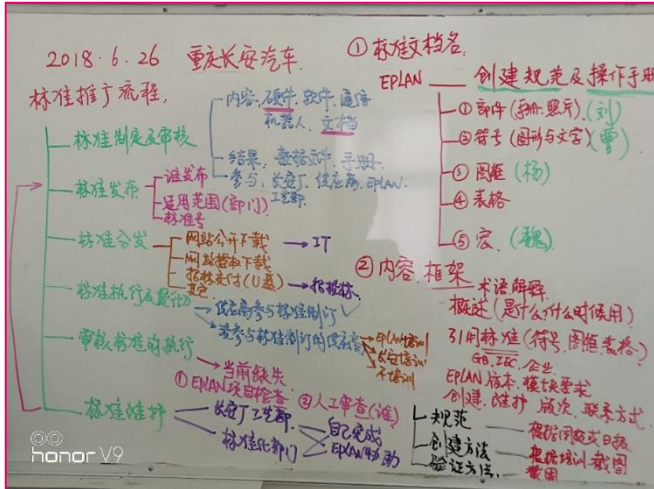 2018.6.26 重庆长安汽车
标准推广流程
标准制定及审核
内容,硬件,软件,通信
机器人,文档
结果,数据文件,手册
参与,长安厂,供应商,EPLAN
工艺部
标准发布
谁发布
适用范围(部门)
标准号
标准分发
网站公开下载
IT
网站授权下载
招标交付(U盘)
招投标
其它
标准执行及
供应商参与标准制订
标准制订的供应商
EPLAN培训
长安培训
不培训
审核标准的执行
当前缺失
① EPLAN项目检查
② 人工审查(谁)
标准维护
长安厂工艺部
标准化部门
自己完成
EPLAN协助
① 标准文档名
EPLAN
创建规范及操作手册
① 部件(手册.照片)(刘)
② 符号(图形与文字)(曹)
③ 图框(杨)
④ 表格
⑤ 宏(魏)
② 内容,框架
术语解释
概述(是什么,什么时候用)
引用标准(符号.图框.表格)
GB,IEC,企业
EPLAN版本,模块要求
创建.维护 版次,联系方式
规范
创建方法
根据培训,截图
验证方法
截图
honor V9